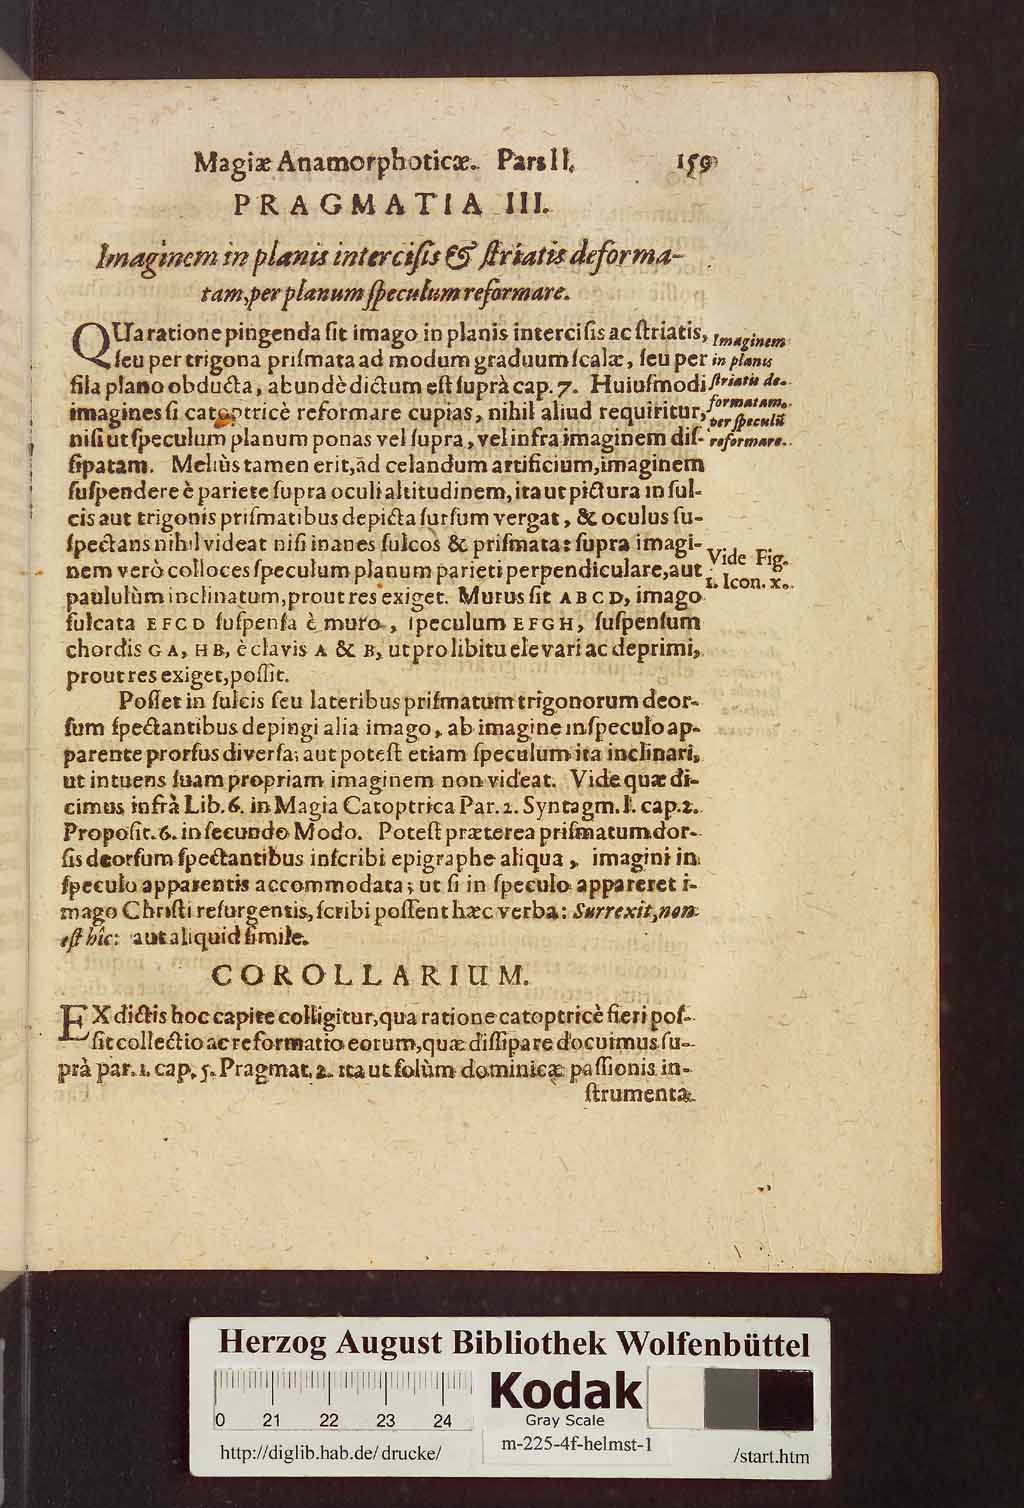 Magiæ Anamorphoticæ. Pars II. 159
PRAGMATIA III.
Imaginem in planis intercisis & striatis deforma-
tam, per planum speculum reformare.
QUa ratione pingenda sit imago in planis intercisis ac striatis,
seu per trigona prismata ad modum graduum scalæ, seu per
fila plano obducta, abundè dictum est suprà cap. 7. Huiusmodi
imagines si catoptricè reformare cupias, nihil aliud requiritur,
nisi ut speculum planum ponas vel supra, vel infra imaginem dis-
sipatam. Meliùs tamen erit, ad celandum artificium, imaginem
suspendere è pariete supra oculi altitudinem, ita ut pictura in sul-
cis aut trigonis prismatibus depicta sursum vergat, & oculus su-
spectans nihil videat nisi inanes sulcos & prismata: supra imagi-
nem verò colloces speculum planum parieti perpendiculare, aut
paululùm inclinatum, prout res exiget. Murus sit ABCD, imago
sulcata EFCD suspensa è muro, speculum EFGH, suspensum
chordis GA, HB, è clavis A & B, ut pro libitu elevari ac deprimi,
prout res exiget, possit.
Imaginem
in planis
striatis de-
formatam
per speculū
reformare.
Vide Fig.
1. Icon. x.
Posset in sulcis seu lateribus prismatum trigonorum deor-
sum spectantibus depingi alia imago, ab imagine in speculo ap-
parente prorsus diversa; aut potest etiam speculum ita inclinari,
ut intuens suam propriam imaginem non videat. Vide quæ di-
cimus infrà Lib. 6. in Magia Catoptrica Par. 2. Syntagm. I. cap. 2.
Proposit. 6. in secundo Modo. Potest præterea prismatum dor-
sis deorsum spectantibus inscribi epigraphe aliqua, imagini in
speculo apparentis accommodata; ut si in speculo appareret i-
mago Christi resurgentis, scribi possent hæc verba: Surrexit, non
est hîc: aut aliquid simile.
COROLLARIUM.
EX dictis hoc capite colligitur, qua ratione catoptricè fieri pos-
sit collectio ac reformatio eorum, quæ dissipare docuimus su-
prà par. 1. cap. 5. Pragmat. 2. ita ut solùm dominicæ passionis in-
strumenta
Herzog August Bibliothek Wolfenbüttel
0 21 22 23 24
Kodak
Gray Scale
m-225-4f-helmst-1
http://diglib.hab.de/drucke/ /start.htm